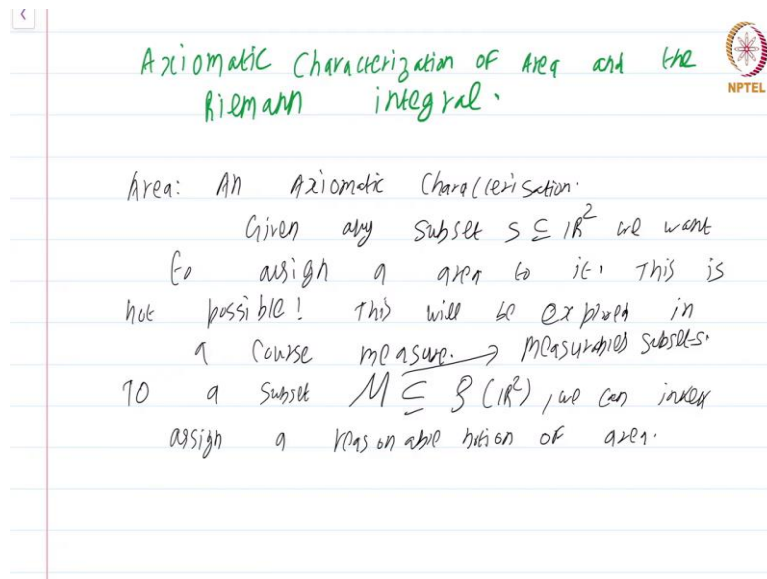 Axiomatic Characterization of Area and the
Riemann integral.
NPTEL
Area: An Axiomatic Characterisation.
Given any subset S ⊆ ℝ² we want
to assign a area to it. This is
not possible! This will be explored in
a course measure. → measurables subsets.
To a subset M ⊆ P(ℝ²), we can
assign a reasonable notion of area.